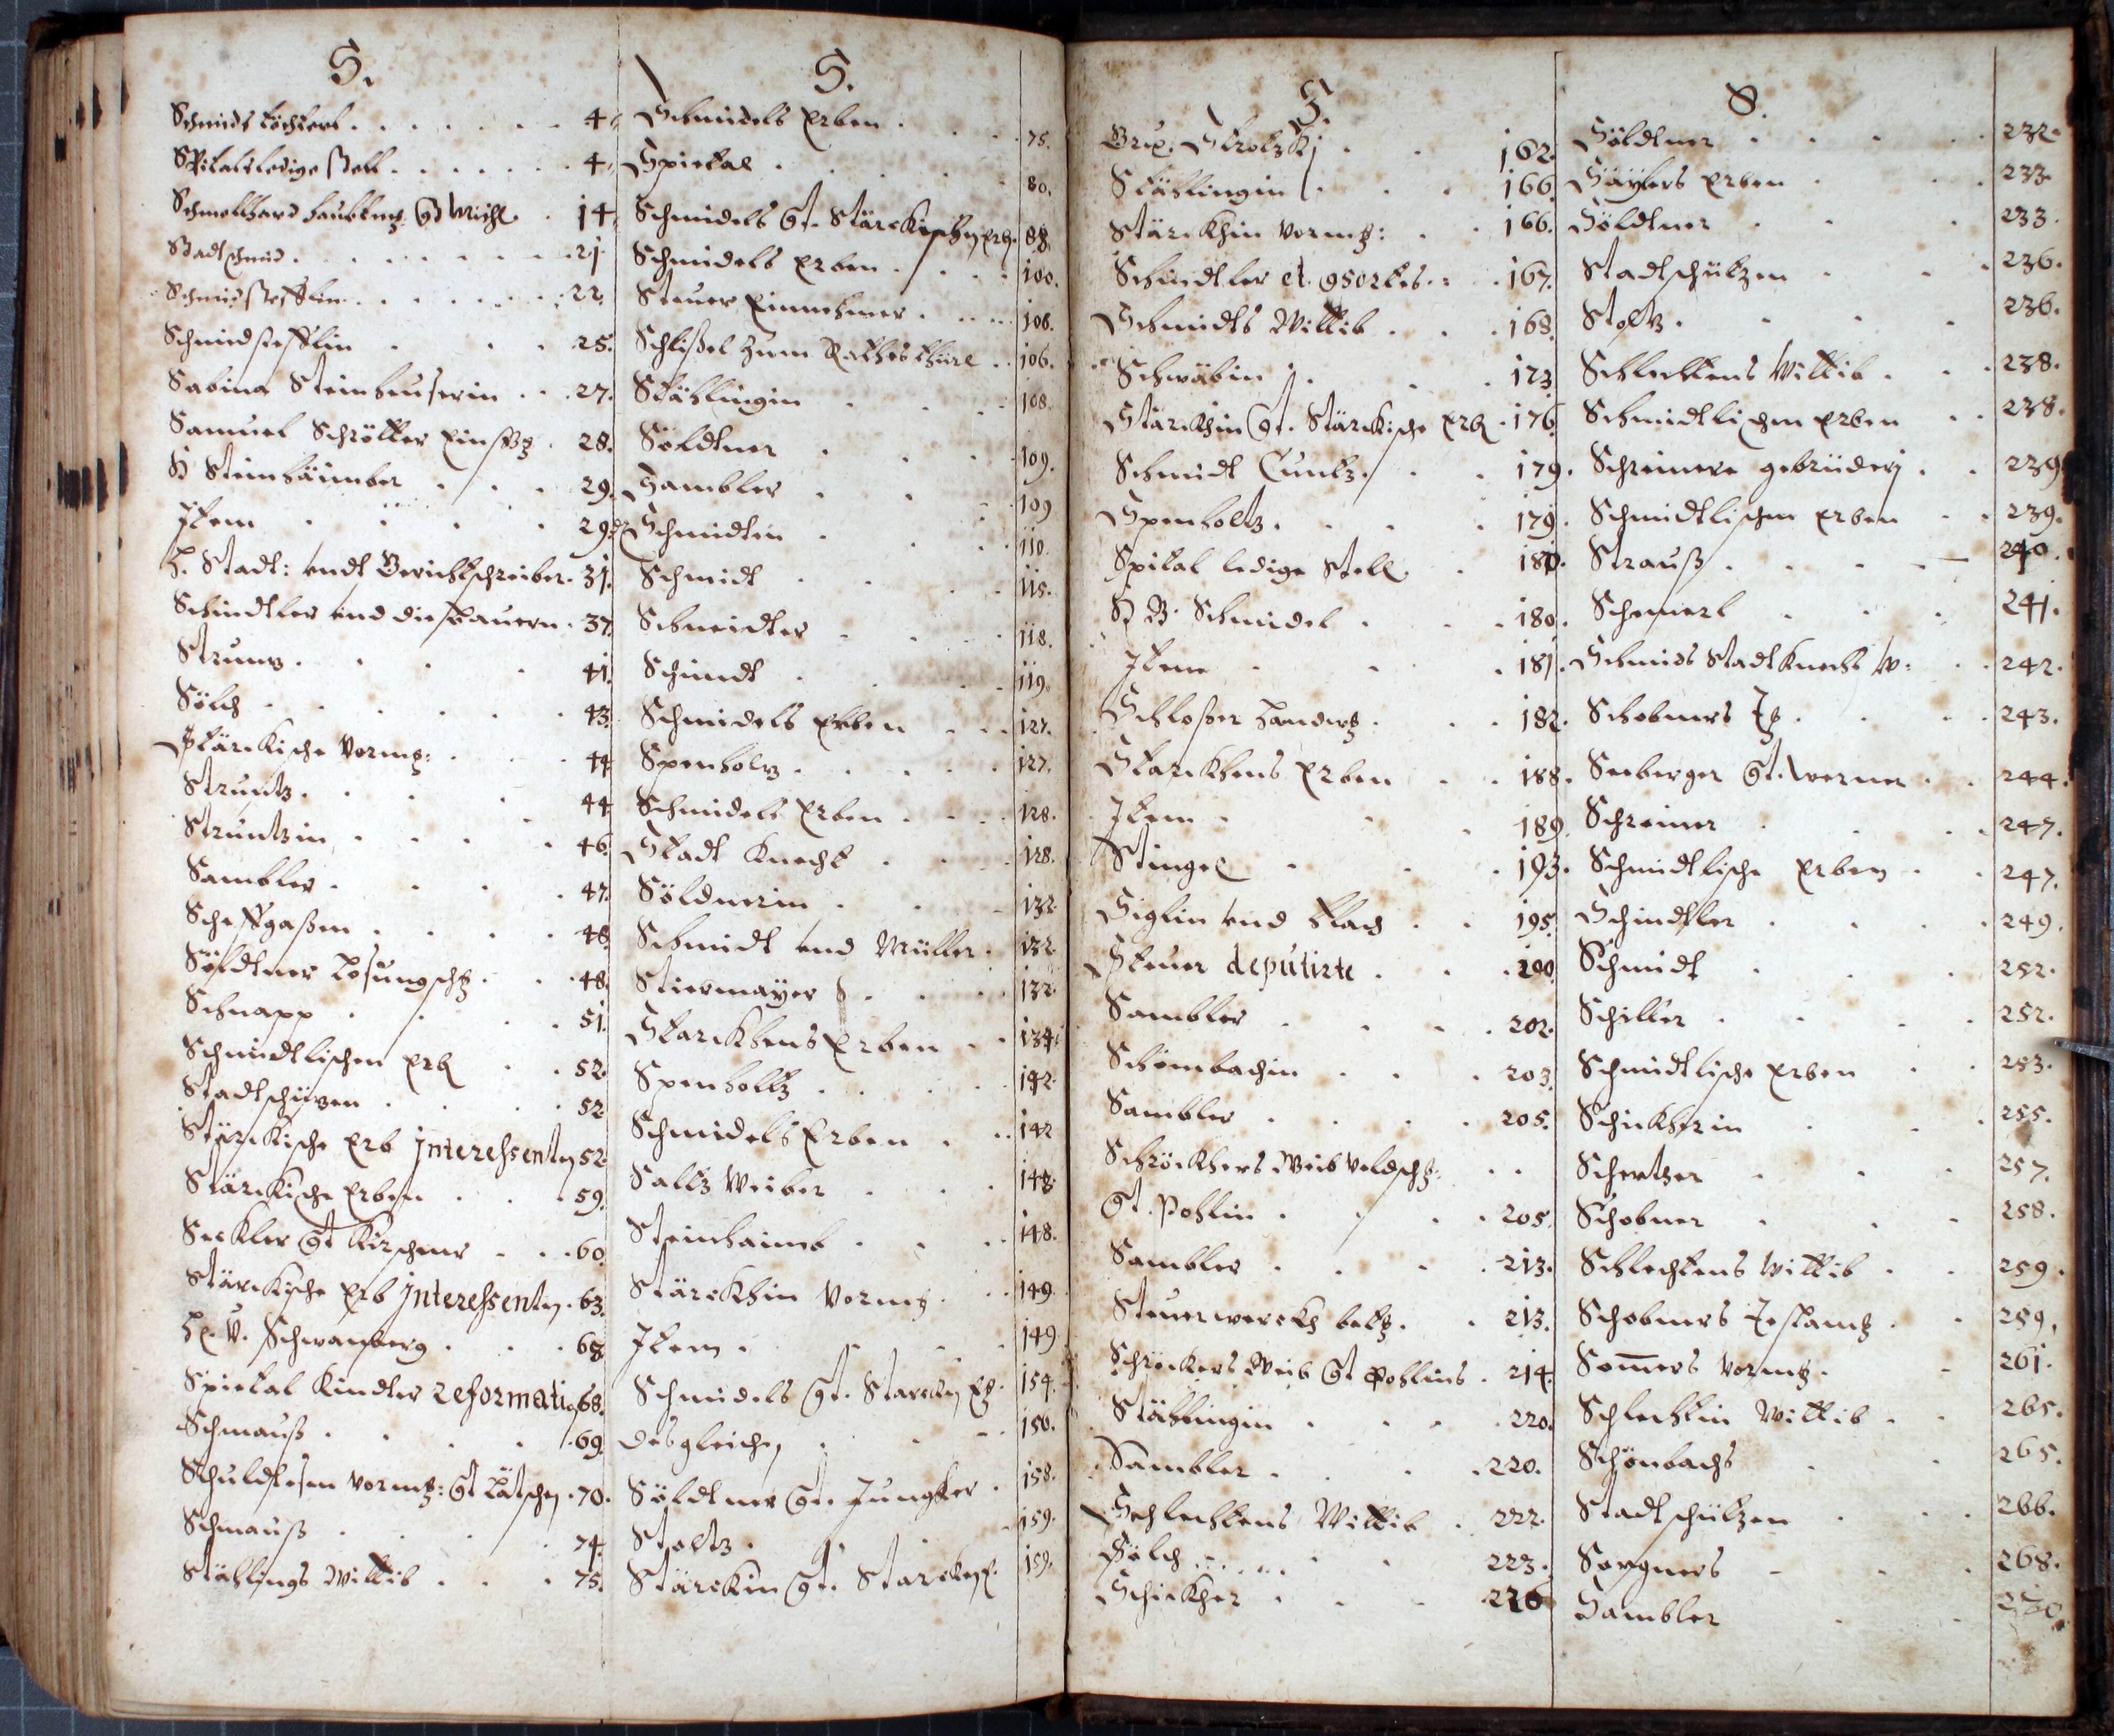 S.
Schmids Töchterl 4.
Spitals ledige stell 4.
14.
Stadtschmid 21
22.
25.
Sabina Steinheuserin 27.
Samuel Schrötter 28.
H Steinhäimber 29.
Item 29.
H. Stadt: undt Gerichtschreiber. 31.
Schindtler und die Bauern. 37.
Strunz. 41.
Sölch 43.
Stärckische Vormz: 44
Struntz. 44
Struntzin 46.
Sambler 47.
Scheffgaßen 48.
Söldtner Losungschz 48.
Schnapp 51.
Schmidtlischen Erb 52.
Stadtschüzen 52
Stärckische Erb Interessenten 52.
Stärckische Erben 59.
Seckler Ct Kirschner 60.
Stärckische Erb Interessenten. 63.
H. V. Schwanberg 68
Spiettal Kindter reformation 68.
Schmauß 69.
Vormz: Ct 70.
Schmauß 74.
Stählings Wittib 75.
S.
Schmidels Erben 75.
Spiettal 80.
Schmidels Ct. Stärckischen Erb. 88.
Schmidels Erben 100.
Steuer Einnehmer 106.
Schlißel zum Rathes thüre 106.
Stählingin 108.
Söldtner 109.
Sambler 109
Schmidtin 110.
Schmidt 115.
Schneidter 118.
Schmidt 119.
Schmidels Erben 127.
Spenholz 127.
Schmidels Erben 128.
Stadt Knecht 128.
Söldnerin 132.
Schmidt und Müller 132.
Stiermayer 132.
Starckhens Erben 134.
Spenholtz 142.
Schmidels Erben 142
Saltz Weiber 148.
Steinhaimb 148.
Stärckhin Vormz 149.
Item 149
Schmidels Ct. Starcken 154.
desgleichen 150.
Söldtner Ct. Jungker 158.
Stoltz 159.
Stärckin Ct. Starcken 159.
S.
162.
Stählingin 166.
Stärckhin Vormz: 166.
Schindtler et 167.
Schmidts Wittib 168.
Schwäbin 173
Stärckhin Ct. Stärckische Erb 176.
Schmidt Cuntz. 179.
Spenholtz 179.
Spital ledige Stell 180.
H B. Schmidel 180.
Item 181.
Schloßer Handwz 182.
Starckhens Erben 188.
Item 189.
Stingel 193.
Siglin und 195.
Steuer deputirte 200.
Sambler 202.
Schönbachin 203.
Sambler 205.
Schröckhers Weib
Ct. Pohlin 205.
Sambler 213.
213.
Schröckers Weib Ct Pohlins 214.
Stählingin 220.
Sambler 220.
Schlechtens Wittib 222.
Sölch 223.
Schickher 226
S.
Söldtner 232.
Säylers Erben 233.
Söldtner 233.
Stadtschützen 236.
Stoltz 236.
Schlechtens Wittib 238.
Schmidtlichen Erben 238.
Schreiners gebrüderj 239
Schmidtlischen Erben 239.
Strauß 240.
Schmerl 241.
Schmids Stadtknechts W: 242.
Schobners 243.
Seeberger Ct. Werner 244.
Schreiner 247.
Schmidtlische Erben 247.
Schindtler 249.
Schmidt 252.
Schiller 252.
Schmidtlische Erben 253.
Schickherin 255.
Schertzer 257.
Schobner 258.
Schlechtens Wittib 259.
Schobners Testamtz 259.
Som̄ers Vormz. 261.
Schlechtin Wittib 265.
Schönbachs 265.
Stadtschützen 266.
Sorgners 268.
Sambler 270.